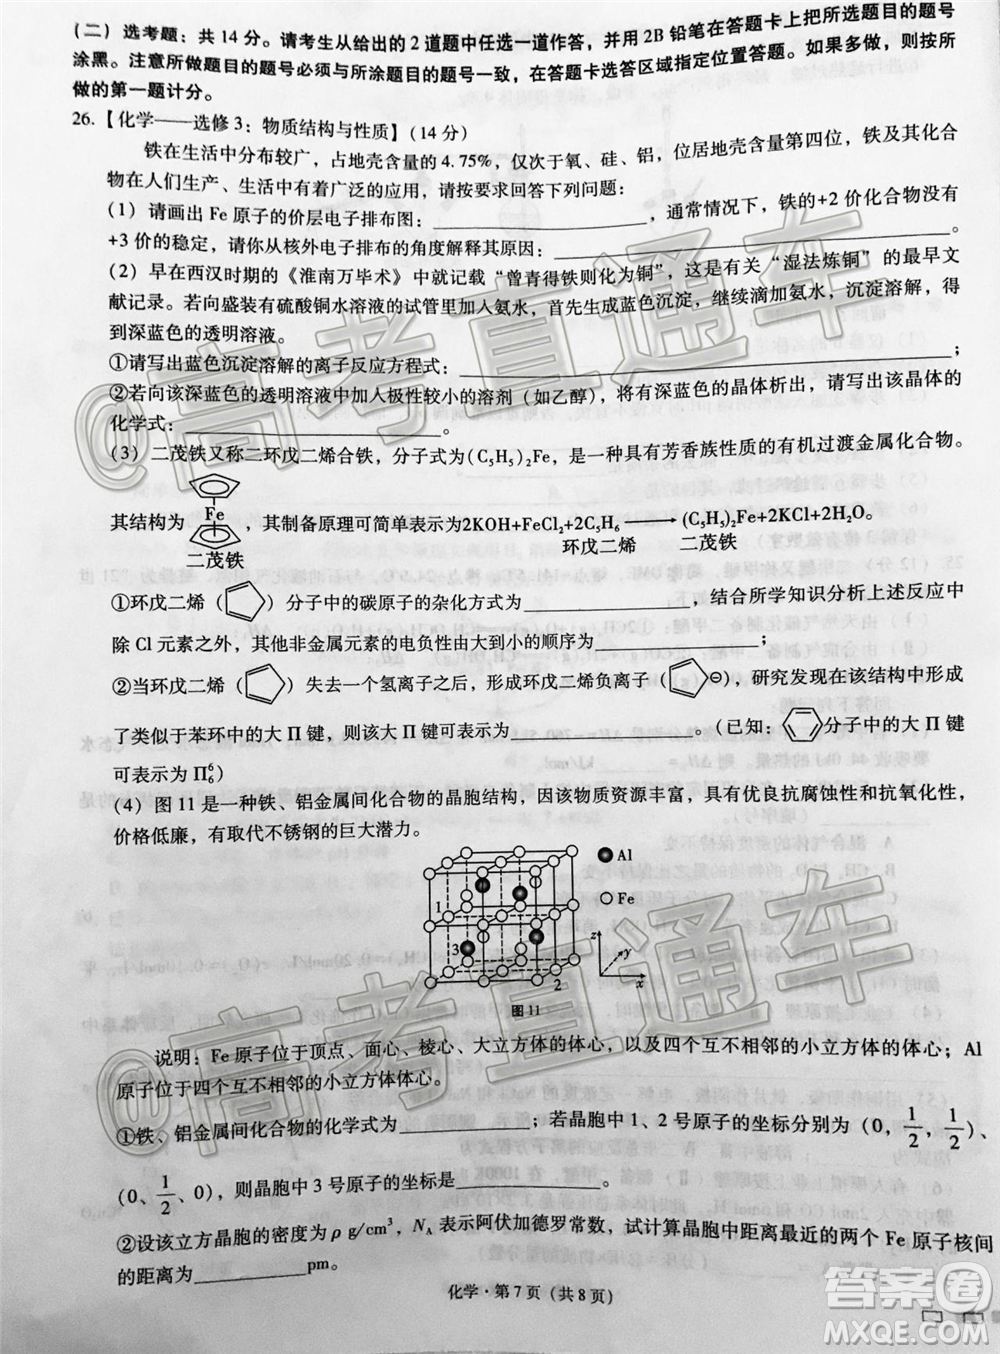 (二) 选考题：共 14 分。请考生从给出的 2 道题中任选一道作答，并用 2B 铅笔在答题卡上把所选题目的题号
涂黑。注意所做题目的题号必须与所涂题目的题号一致，在答题卡选答区域指定位置答题。如果多做，则按所
做的第一题计分。
26.【化学——选修 3：物质结构与性质】(14 分)
铁在生活中分布较广，占地壳含量的 4.75%，仅次于氧、硅、铝，位居地壳含量第四位，铁及其化合
物在人们生产、生活中有着广泛的应用，请按要求回答下列问题：
(1) 请画出 Fe 原子的价层电子排布图：____________，通常情况下，铁的+2 价化合物没有
+3 价的稳定，请你从核外电子排布的角度解释其原因：____________。
(2) 早在西汉时期的《淮南万毕术》中就记载“曾青得铁则化为铜”，这是有关“湿法炼铜”的最早文
献记录。若向盛装有硫酸铜水溶液的试管里加人氨水，首先形成蓝色沉淀，继续滴加氨水，沉淀溶解，得
到深蓝色的透明溶液。
①请写出蓝色沉淀溶解的离子反应方程式：____________；
②若向该深蓝色的透明溶液中加人极性较小的溶剂（如乙醇），将有深蓝色的晶体析出，请写出该晶体的
化学式：____________。
(3) 二茂铁又称二环戊二烯合铁，分子式为(C₅H₅)₂Fe，是一种具有芳香族性质的有机过渡金属化合物。
Fe
其结构为 ，其制备原理可简单表示为2KOH+FeCl₂+2C₅H₆ → (C₅H₅)₂Fe+2KCl+2H₂O。
二茂铁 环戊二烯 二茂铁
①环戊二烯 分子中的碳原子的杂化方式为____________，结合所学知识分析上述反应中
除 Cl 元素之外，其他非金属元素的电负性由大到小的顺序为____________；
②当环戊二烯 失去一个氢离子之后，形成环戊二烯负离子 ⊖，研究发现在该结构中形成
了类似于苯环中的大 Π 键，则该大 Π 键可以表示为____________。（已知： 分子中的大 Π 键
可表示为 Π₆⁶）
(4) 图 11 是一种铁、铝金属间化合物的晶胞结构，因该物质资源丰富，具有优良抗腐蚀性和抗氧化性，
价格低廉，有取代不锈钢的巨大潜力。
Al
Fe
1
2
3
z
y
x
图 11
说明：Fe 原子位于顶点、面心、棱心、大立方体的体心，以及四个互不相邻的小立方体的体心；Al
原子位于四个互不相邻的小立方体体心。
①铁、铝金属间化合物的化学式为____________；若晶胞中 1、2 号原子的坐标分别为（0，1/2，1/2）、
（0，1/2，0），则晶胞中 3 号原子的坐标是____________。
②设该立方晶胞的密度为 ρ g/cm³，Nₐ 表示阿伏加德罗常数，试计算晶胞中距离最近的两个 Fe 原子核间
的距离为____________pm。
化学·第 7 页（共 8 页）
@高考直通车
@高考直通车
答案圈
MXQE.COM